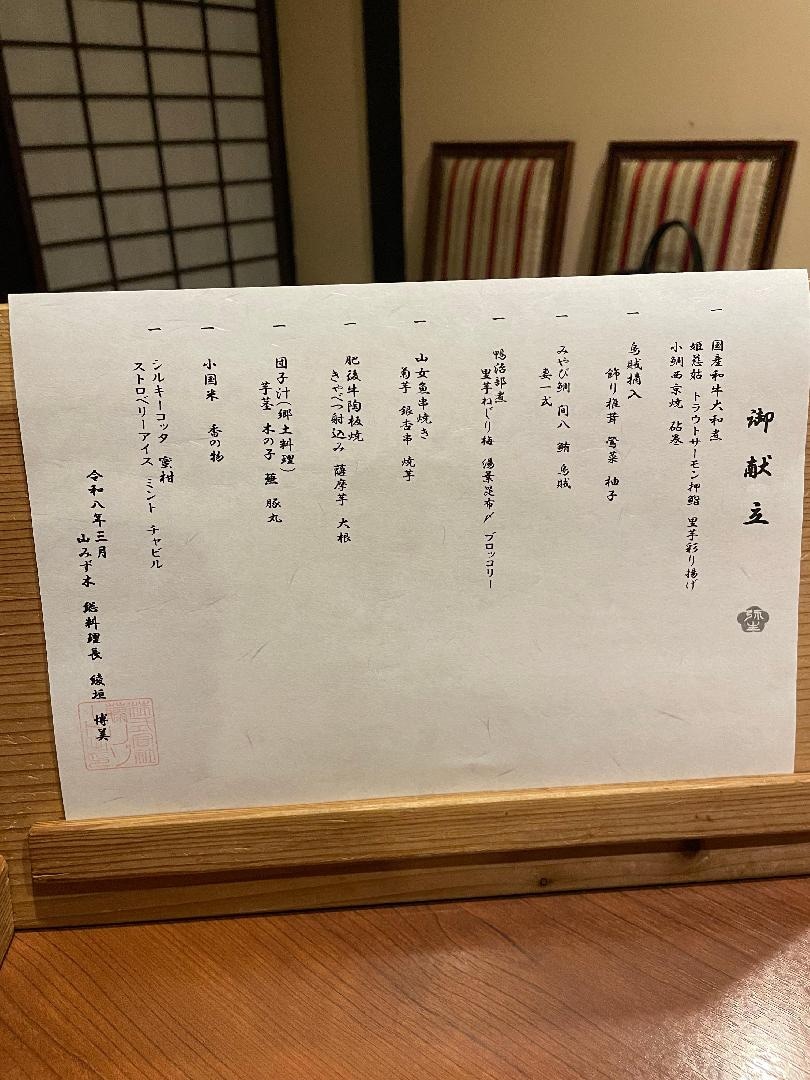 御献立
弥生
一 国産和牛大和煮
姫慈姑 トラウトサーモン押鮨 里芋彩り揚げ
小鯛西京焼 砧巻
一 烏賊摘入
飾り椎茸 鶯菜 柚子
一 みやび鯛 間八 鮪 烏賊
妻一式
一 鴨治部煮
里芋ねじり梅 湯葉昆布〆 ブロッコリー
一 山女魚串焼き
菊芋 銀杏串 焼芋
一 肥後牛陶板焼
きゃべつ射込み 薩摩芋 大根
一 団子汁(郷土料理)
芋茎 木の子 蕪 豚丸
一 小国米 香の物
一 シルキーコッタ 蜜柑
ストロベリーアイス ミント チャビル
令和八年三月
山みず木 総料理長 綾垣 博美
株式会社